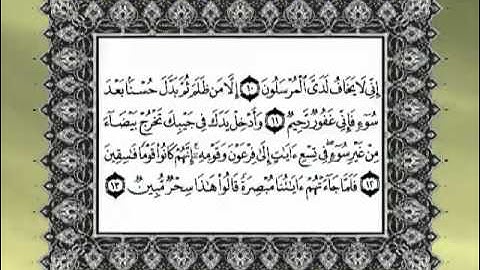 إِنِّى لَا يَخَافُ لَدَىَّ ٱلْمُرْسَلُونَ ١٠ إِلَّا مَن ظَلَمَ ثُمَّ بَدَّلَ حُسْنًۢا بَعْدَ
سُوٓءٍ فَإِنِّى غَفُورٌ رَّحِيمٌ ١١ وَأَدْخِلْ يَدَكَ فِى جَيْبِكَ تَخْرُجْ بَيْضَآءَ
مِنْ غَيْرِ سُوٓءٍ ۖ فِى تِسْعِ ءَايَٰتٍ إِلَىٰ فِرْعَوْنَ وَقَوْمِهِۦٓ ۚ إِنَّهُمْ كَانُوا۟ قَوْمًا فَٰسِقِينَ
١٢ فَلَمَّا جَآءَتْهُمْ ءَايَٰتُنَا مُبْصِرَةً قَالُوا۟ هَٰذَا سِحْرٌ مُّبِينٌ ١٣